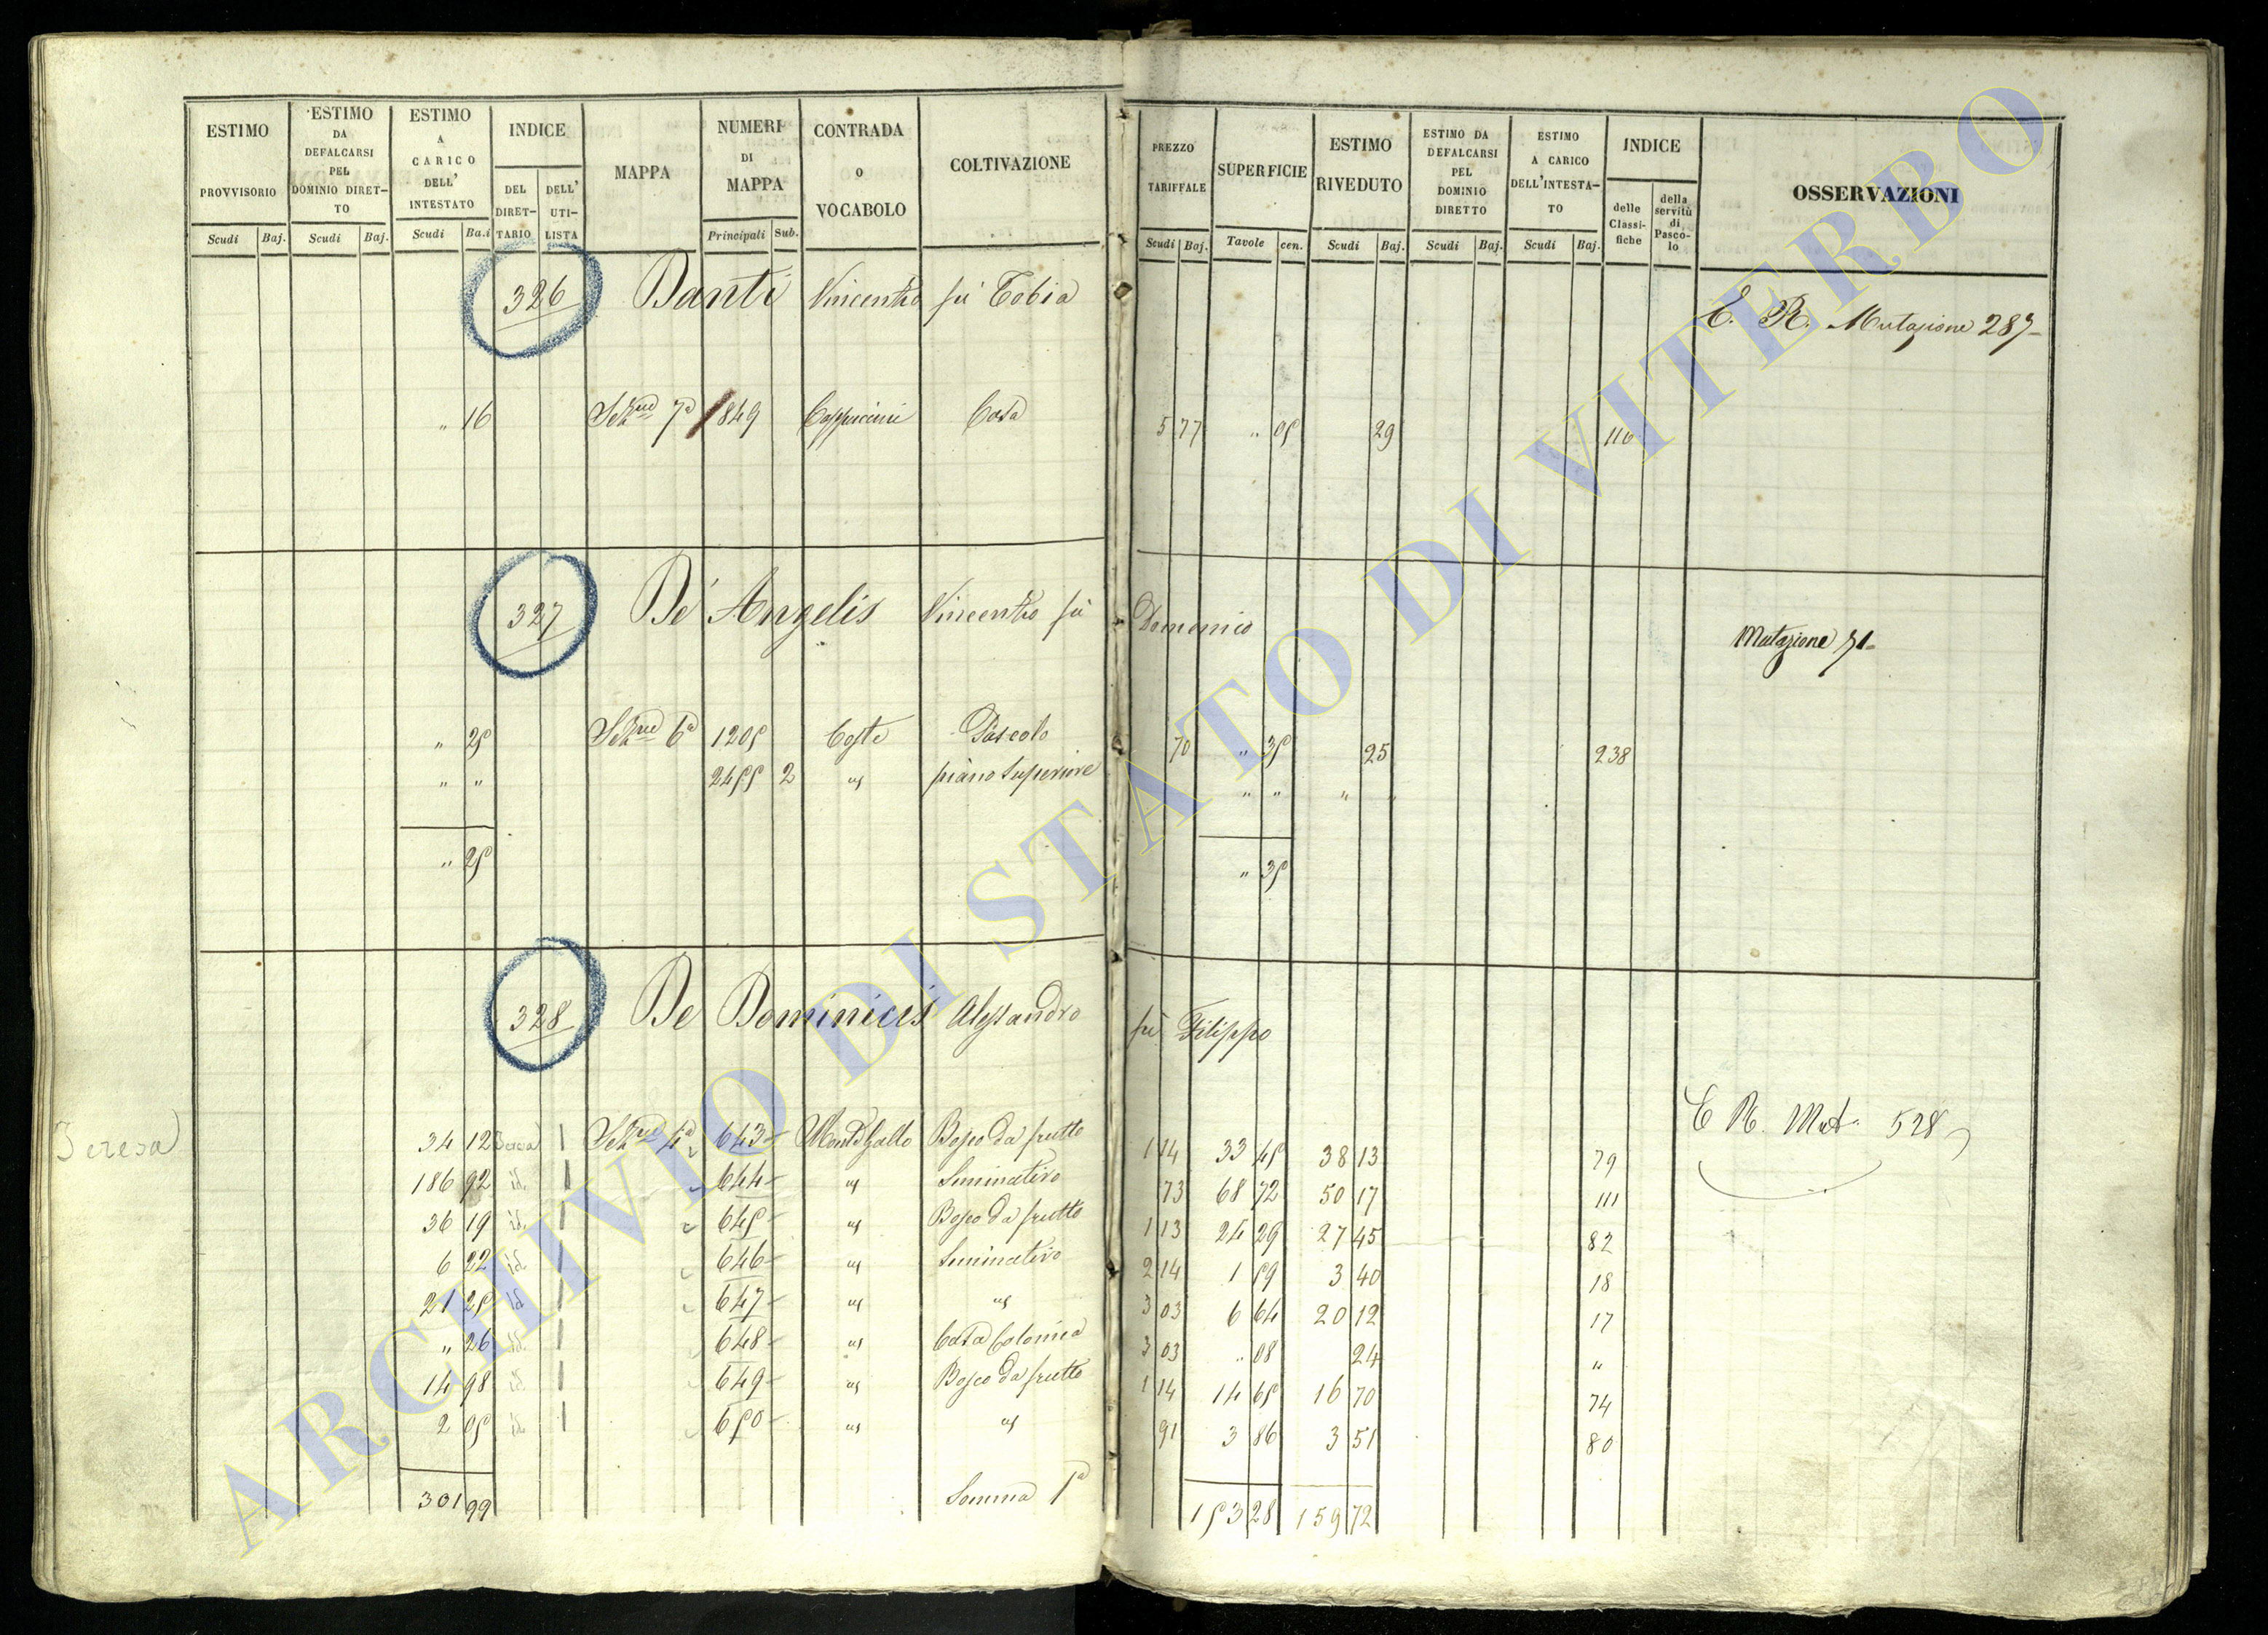 ESTIMO PROVVISORIO
Scudi Baj.
ESTIMO DA DEFALCARSI PEL DOMINIO DIRET-TO
Scudi Baj.
ESTIMO A CARICO DELL' INTESTATO
Scudi Ba.i
INDICE
DEL DIRET-TARIO
DELL' UTI-LISTA
MAPPA
NUMERI DI MAPPA
Principali Sub.
CONTRADA O VOCABOLO
COLTIVAZIONE
PREZZO TARIFFALE
Scudi Baj.
SUPERFICIE
Tavole cen.
ESTIMO RIVEDUTO
Scudi Baj.
ESTIMO DA DEFALCARSI PEL DOMINIO DIRETTO
Scudi Baj.
ESTIMO A CARICO DELL'INTESTA-TO
Scudi Baj.
INDICE
delle Classi-fiche
della servitù di Pasco-lo
OSSERVAZIONI
326 Danti Vincenzo fù Tobia
C. R. Mutazione 287
" 16 Sez.ne 7a 1849 Cappuccini Casa 5 77 " 05 29 116
327 De' Angelis Vincenzo fù Domenico
Mutazione 71
" 25 Sez.ne 6a 1205 Coste Pascolo 70 " 35 25 238
" " 2455 2 us piano superiore " " " "
" 25 " 35
328 De Dominicis Alessandro fù Filippo
C R. Mut. 528
Teresa
34 12 Teresa 1 Sez.ne 4a 643 Monte Gallo Bosco da frutto 1 14 33 45 38 13 79
186 92 id. 1 644 us Seminativo 73 68 72 50 17 111
36 19 id. 1 645 us Bosco da frutto 1 13 24 29 27 45 82
6 22 id. 1 646 us Seminativo 2 14 1 59 3 40 18
21 25 id 1 647 us us 3 03 6 64 20 12 17
" 26 id. 1 648 us Casa Colonica 3 03 " 08 24 "
14 98 id. 1 649 us Bosco da frutto 1 14 14 65 16 70 74
2 05 id. 1 650 us us 91 3 86 3 51 80
301 99 Somma 1a 153 28 159 72
ARCHIVIO DI STATO DI VITERBO